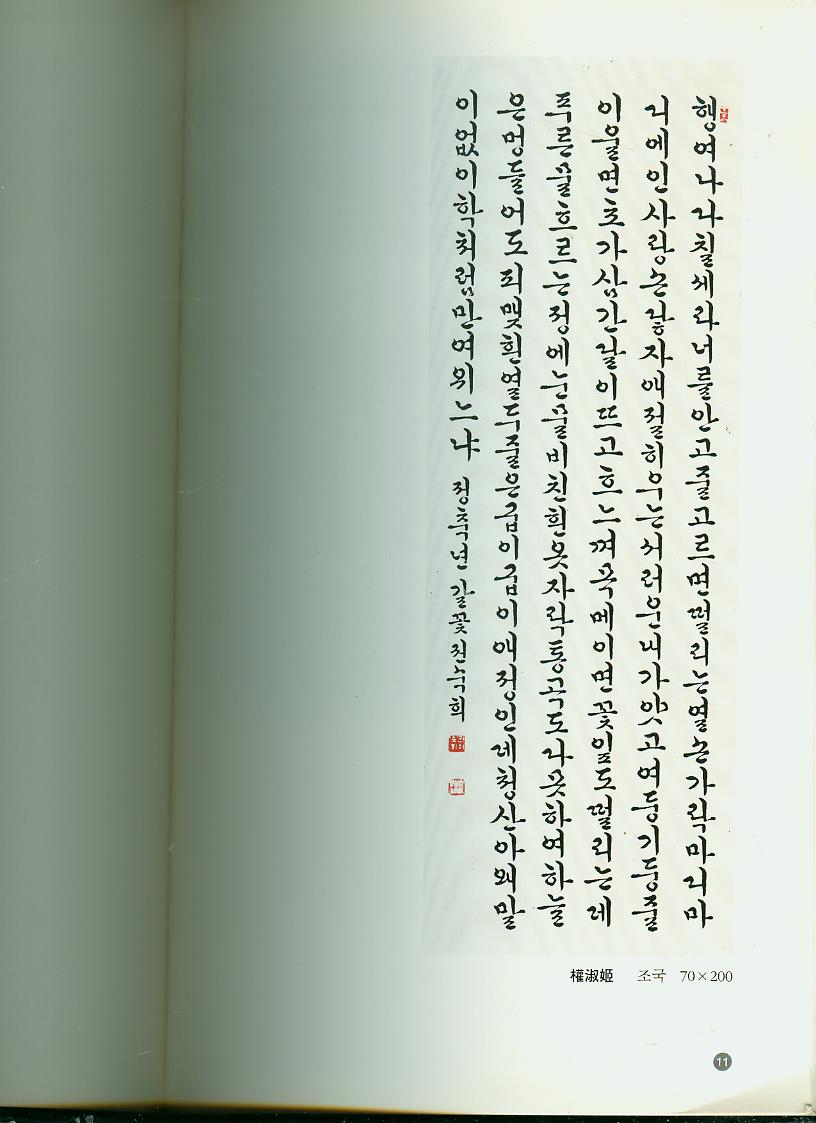 행여나다칠세라너를안고줄고르면떨리는열손가락마디마
디에인사랑손닿자애절히우는서러운내가얏고여둥기둥줄
이울면초가삼간달이뜨고흐느껴목메이면꽃잎도떨리는데
푸른물흐르는정에눈물비친흰옷자락통곡도다못하여하늘
은멍들어도피맺흰열두줄은굽이굽이애정인데청산아왜말
이없이학처럼만여위느냐 정축년 갈꽃 권숙희
權淑姬 조국 70×200
11